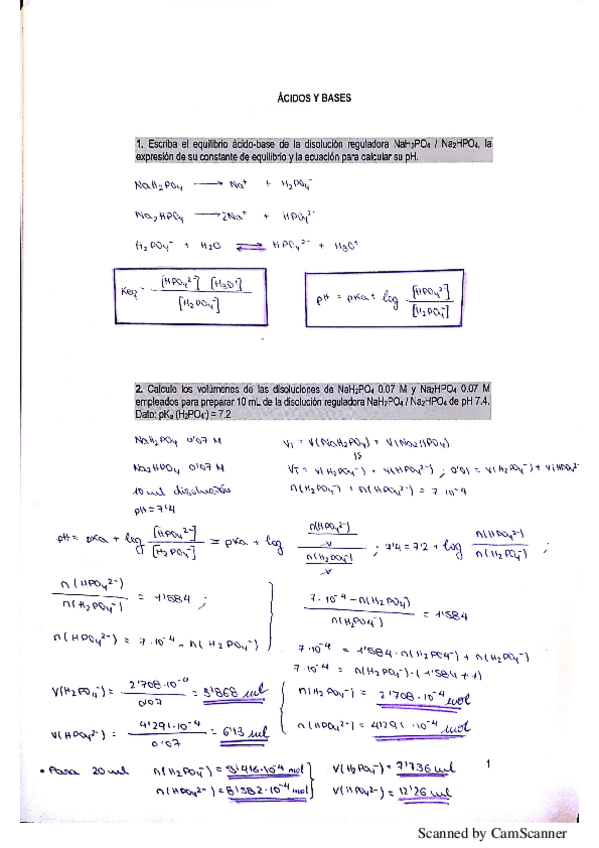 ÁCIDOS Y BASES
1. Escriba el equilibrio ácido-base de la disolución reguladora NaH₂PO₄ / Na₂HPO₄, la
expresión de su constante de equilibrio y la ecuación para calcular su pH.
NaH₂PO₄ ⟶ Na⁺ + H₂PO₄⁻
Na₂HPO₄ ⟶ 2Na⁺ + HPO₄²⁻
H₂PO₄⁻ + H₂O ⇌ HPO₄²⁻ + H₃O⁺
Keq = [HPO₄²⁻] [H₃O⁺] / [H₂PO₄⁻]
pH = pKa + log [HPO₄²⁻] / [H₂PO₄⁻]
2. Calcule los volúmenes de las disoluciones de NaH₂PO₄ 0.07 M y Na₂HPO₄ 0.07 M
empleados para preparar 10 mL de la disolución reguladora NaH₂PO₄ / Na₂HPO₄ de pH 7.4.
Dato: pKₐ (H₂PO₄⁻) = 7.2
NaH₂PO₄ 0'07 M V_T = V(NaH₂PO₄) + V(Na₂HPO₄)
Na₂HPO₄ 0'07 M V_T = V(H₂PO₄⁻) + V(HPO₄²⁻) ; 0'01 = V(H₂PO₄⁻) + V(HPO₄²⁻
10 ml disolución n(H₂PO₄⁻) + n(HPO₄²⁻) = 7·10⁻⁴
pH = 7'4
pH = pKa + log [HPO₄²⁻] / [H₂PO₄⁻] = pKa + log n(HPO₄²⁻)/V / n(H₂PO₄⁻)/V ; 7'4 = 7'2 + log n(HPO₄²⁻) / n(H₂PO₄⁻) ;
n(HPO₄²⁻) / n(H₂PO₄⁻) = 1'584 ; 7·10⁻⁴ - n(H₂PO₄⁻) / n(H₂PO₄⁻) = 1'584
n(HPO₄²⁻) = 7·10⁻⁴ - n(H₂PO₄⁻) 7·10⁻⁴ = 1'584·n(H₂PO₄⁻) + n(H₂PO₄⁻)
7·10⁻⁴ = n(H₂PO₄⁻)·(1'584 + 1)
V(H₂PO₄⁻) = 2'708·10⁻⁴ / 0'07 = 3'868 ml n(H₂PO₄⁻) = 2'708·10⁻⁴ mol
V(HPO₄²⁻) = 4'291·10⁻⁴ / 0'07 = 6'13 ml n(HPO₄²⁻) = 4'291·10⁻⁴ mol
• Para 20 ml n(H₂PO₄⁻) = 5'416·10⁻⁴ mol V(H₂PO₄⁻) = 7'736 ml
n(HPO₄²⁻) = 8'582·10⁻⁴ mol V(HPO₄²⁻) = 12'26 ml
1
Scanned by CamScanner